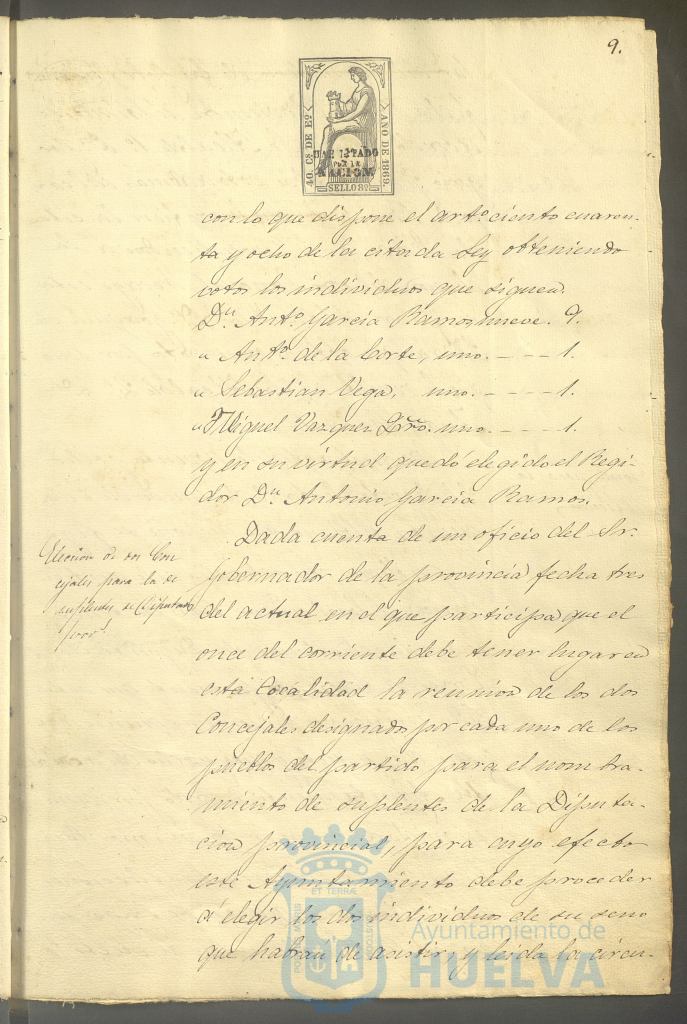 9.
40. Cs DE Eº
AÑO DE 1869.
HABILITADO
POR LA
NACION.
SELLO 8º
con lo que dispone el artº ciento cuaren-
ta y ocho de la citada Ley obteniendo
votos los individuos que siguen.
Dn. Antº. Garcia Ramos, nueve. 9.
" Antº. de la Corte, uno. - - - 1.
" Sebastian Vega, uno. - - - - 1.
" Miguel Vazquez uno. - - - - 1.
y en su virtud quedó elegido el Regi-
dor Dn. Antonio Garcia Ramos.
Dada cuenta de un oficio del Sr.
Gobernador de la provincia fecha tres
del actual en el que participa que el
once del corriente debe tener lugar en
esta localidad la reunion de los dos
Concejales designados por cada uno de los
pueblos del partido para el nombra-
miento de suplentes de la Diputa-
cion provincial, para cuyo efecto
este Ayuntamiento debe proceder
á elegir los dos individuos de su seno
que habran de asistir, y leida la circu-
Eleccion de dos Con
cejales para la de
suplentes de Diputado
provl.
ET TERRÆ
Ayuntamiento de
HUELVA